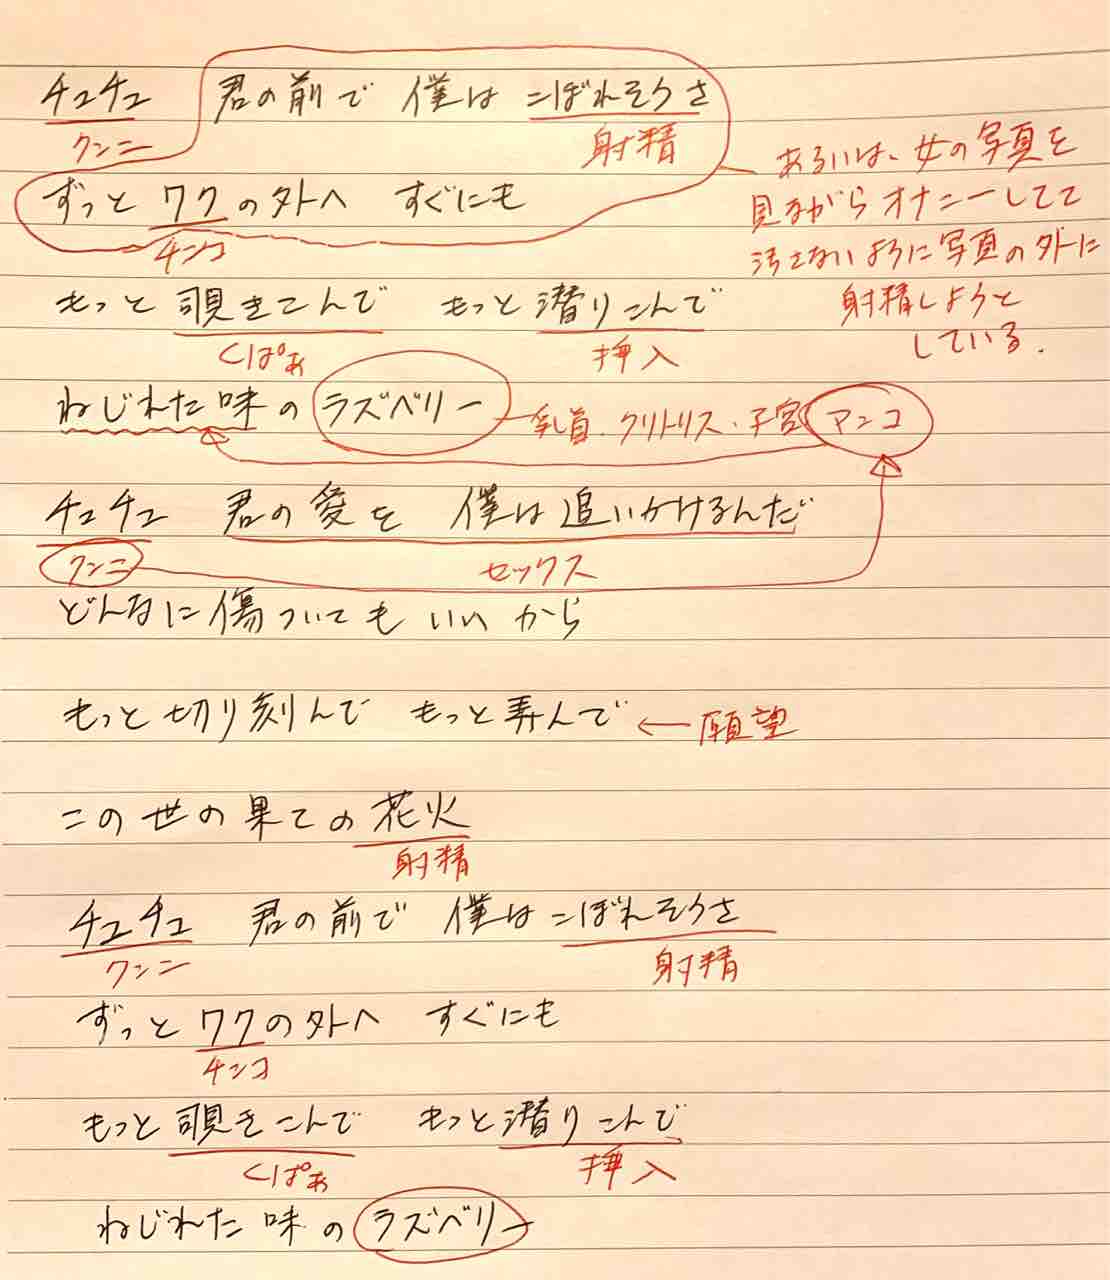 チュチュ 君の前で 僕は こぼれそうさ
クンニ 射精
ずっと ワクの外へ すぐにも
チンコ
あるいは、女の写真を
見ながらオナニーしてて
汚さないように写真の外に
射精しようと
している.
もっと 覗きこんで もっと潜りこんで
くぱぁ 挿入
ねじれた味のラズベリー
乳首・クリトリス・子宮 マンコ
チュチュ 君の愛を 僕は追いかけるんだ
クンニ セックス
どんなに傷ついてもいいから
もっと切り刻んで もっと弄んで ← 願望
この世の果ての花火
射精
チュチュ 君の前で 僕はこぼれそうさ
クンニ 射精
ずっと ワクの外へ すぐにも
チンコ
もっと覗きこんで もっと潜りこんで
くぱぁ 挿入
ねじれた味のラズベリー